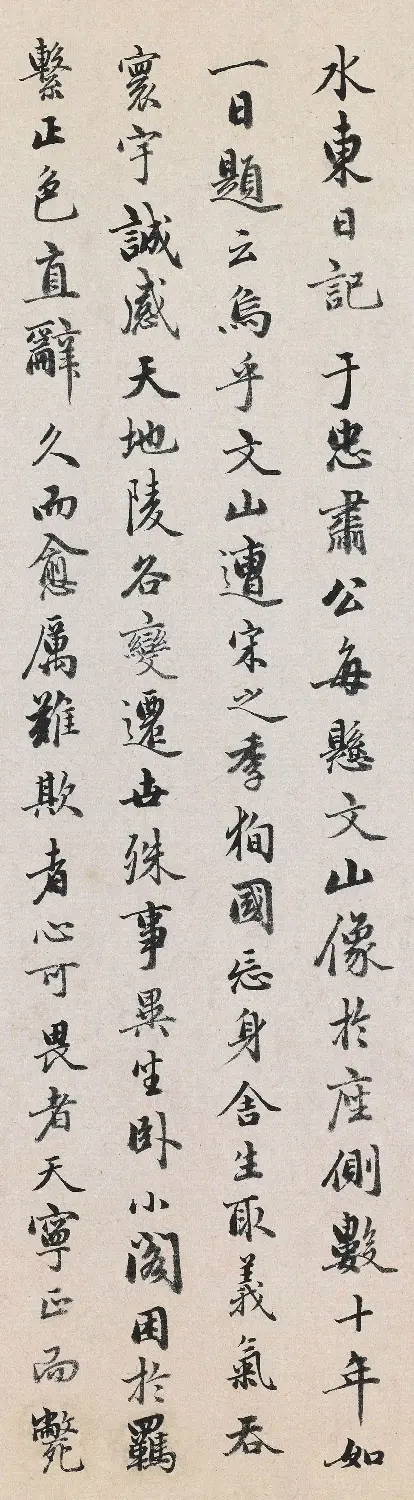 水東日記于忠肅公每懸文山像於座側數十年如
一日題云烏乎文山遭宋之季狥國忘身舍生取義氣吞
寰宇誠感天地陵谷變遷世殊事異坐卧小閣困於羈
繫正色直辭久而愈厲難欺者心可畏者天寧正而斃